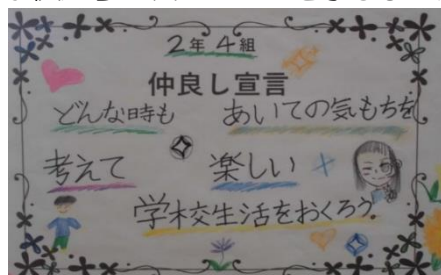 ２年４組
仲良し宣言
どんな時も　あいての気もちを
考えて　楽しい
学校生活をおくろう。